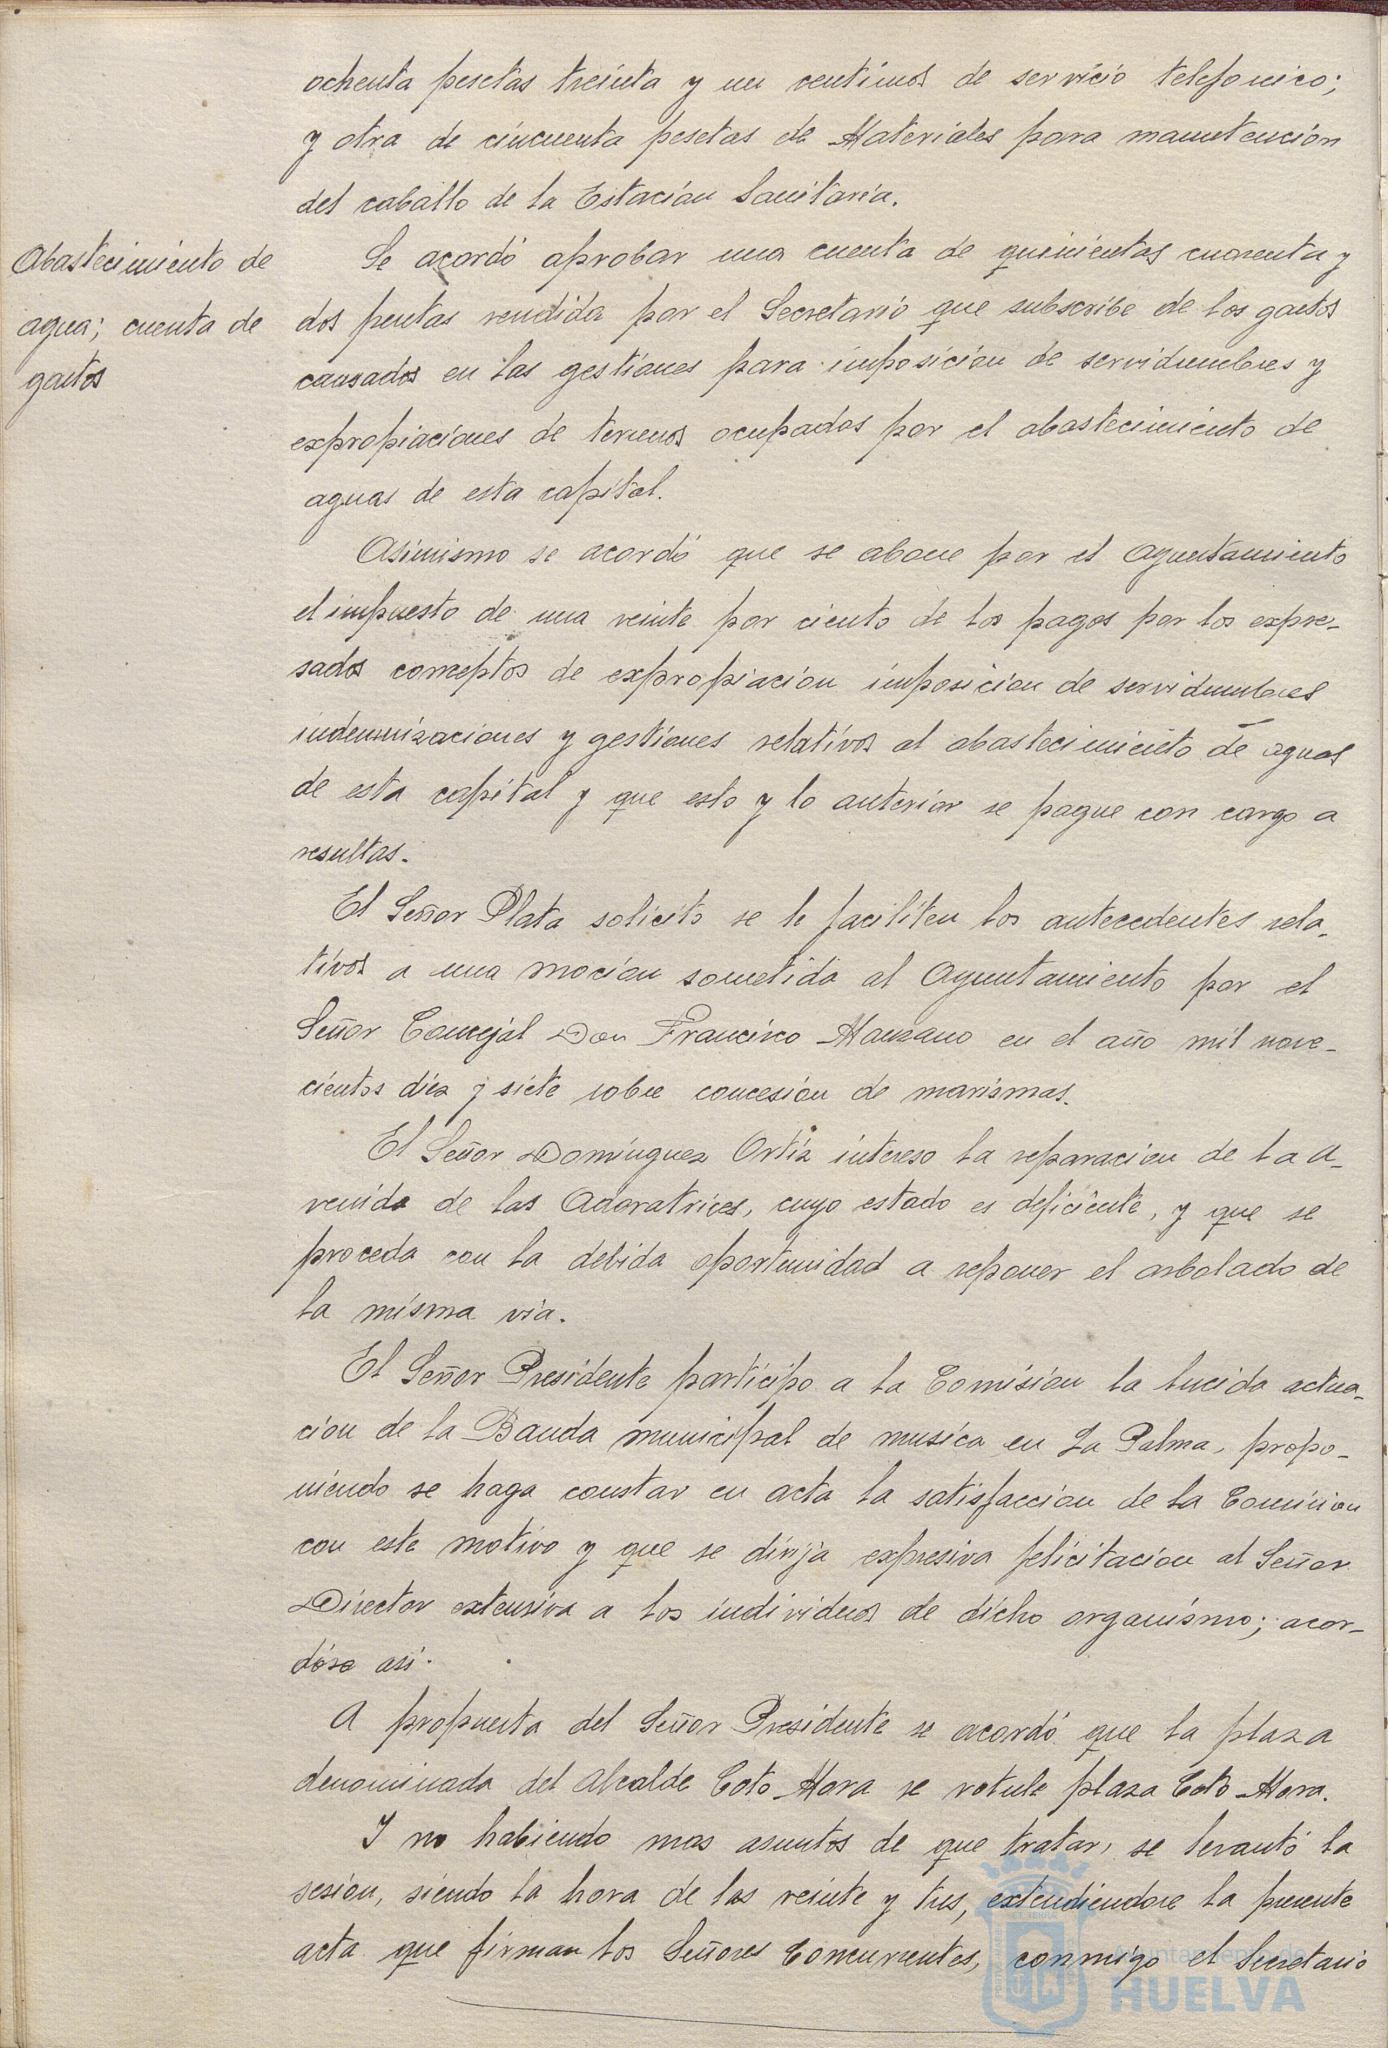 ochenta pesetas treinta y un centimos de servicio telefonico;
y otra de cincuenta pesetas de Materiales para manutención
del caballo de la Estacion Sanitaria.
Abastecimiento de
agua; cuenta de
gastos
Se acordó aprobar una cuenta de quinientas cuarenta y
dos pesetas rendida por el Secretario que subscribe de los gastos
causados en las gestiones para imposicion de servidumbres y
expropiaciones de terrenos ocupados por el abastecimiento de
aguas de esta capital.
Asimismo se acordó que se abone por el Ayuntamiento
el impuesto de una veinte por ciento de los pagos por los expre-
sados conceptos de expropiacion imposicion de servidumbres
indemnizaciones y gestiones relativos al abastecimieto de aguas
de esta capital y que esto y lo anterior se pague con cargo a
resultas.
El Señor Plata solicito se le faciliten los antecedentes rela-
tivos a una mocion sometida al Ayuntamiento por el
Señor Concejal Don Francisco Manzano en el año mil nove-
cientos diez y siete sobre concesion de marismas.
El Señor Dominguez Ortiz intereso la reparacion de la A-
venida de las Adoratrices, cuyo estado es deficiente, y que se
proceda con la debida oportunidad a reponer el arbolado de
la misma via.
El Señor Presidente participo a la Comision la lucida actua-
cion de la Banda municipal de musica en La Palma, propo-
niendo se haga constar en acta la satisfaccion de la Comision
con este motivo y que se dirija expresiva felicitacion al Señor
Director extensiva a los individuos de dicho organismo; acor-
dóse asi.
A propuesta del Señor Presidente se acordó que la plaza
denominada del Alcalde Coto Mora se rotule plaza Coto Mora.
Y no habiendo mas asuntos de que tratar, se levantó la
sesion, siendo la hora de las veinte y tres, extendiendose la presente
acta que firman los Señores Concurrentes, conmigo el Secretario
Ayuntamiento de
HUELVA